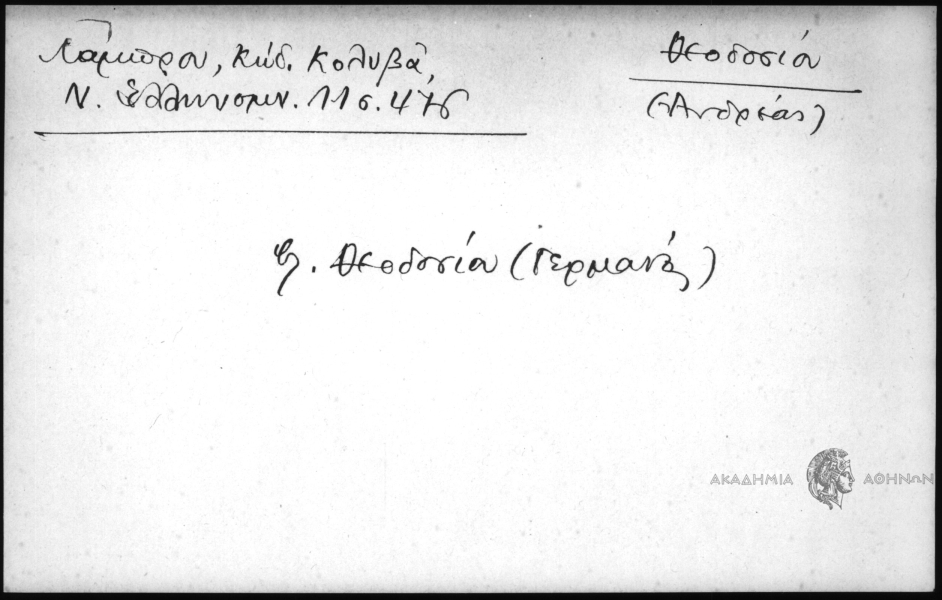 Λάμπρου, Κώδ. Κολυβᾶ,
Ν. Ἑλληνομν. 11 σ. 476
Θεοδοσίου
(Ἀνδρέας)
Θεοδοσίου (Γερμανός)
ΑΚΑΔΗΜΙΑ ΑΘΗΝΩΝ